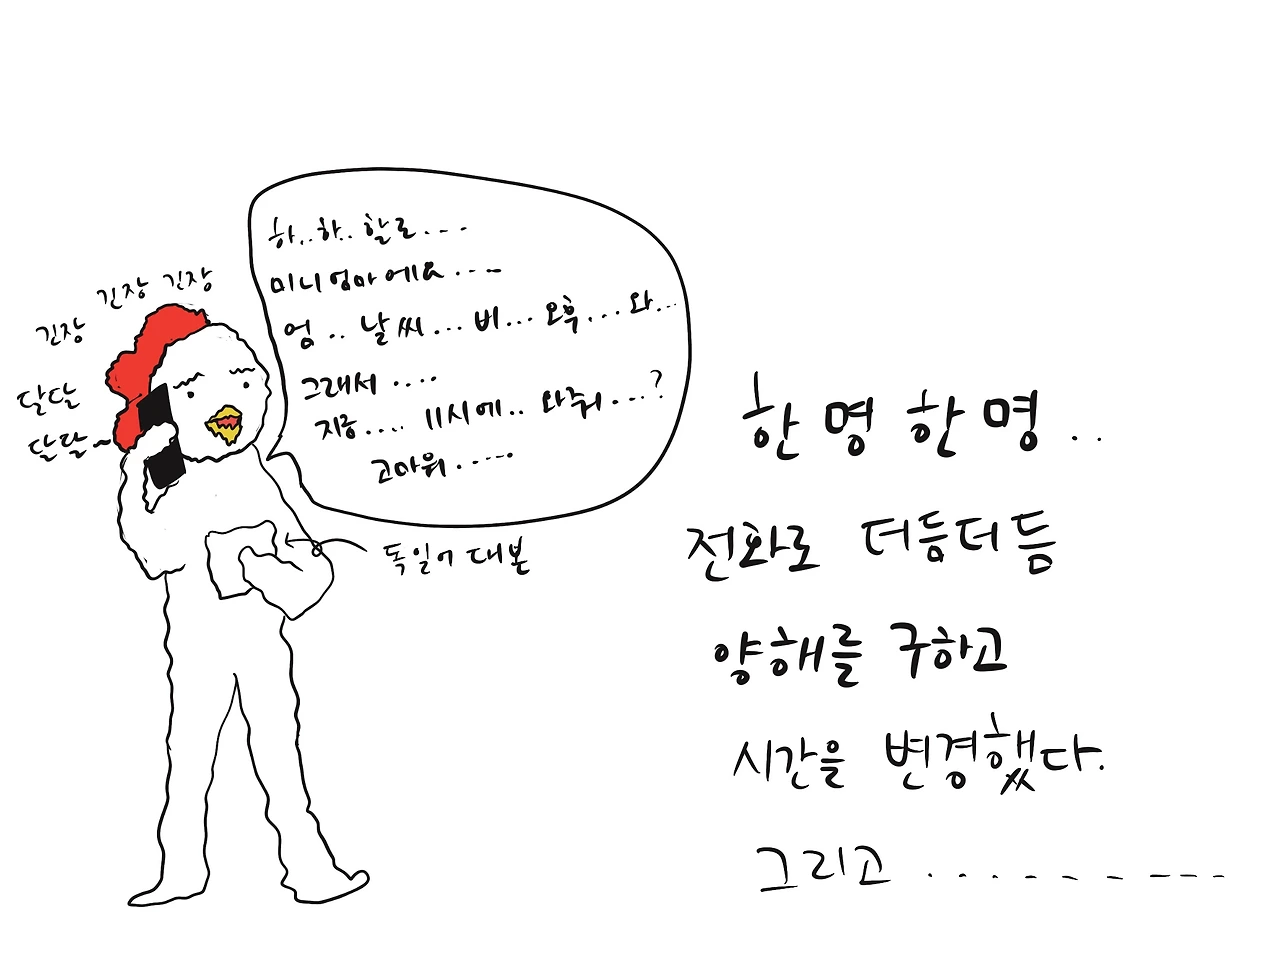 하..하..할로....
미니엄마에요....
엄..날씨...비...오후...와...
그래서....
지금.... 11시에.. 와줘....?
고마워.....
긴장 긴장 긴장
달달
달달~
독일어 대본
한명한명..
전화로 더듬더듬
양해를 구하고
시간을 변경했다.
그리고.........